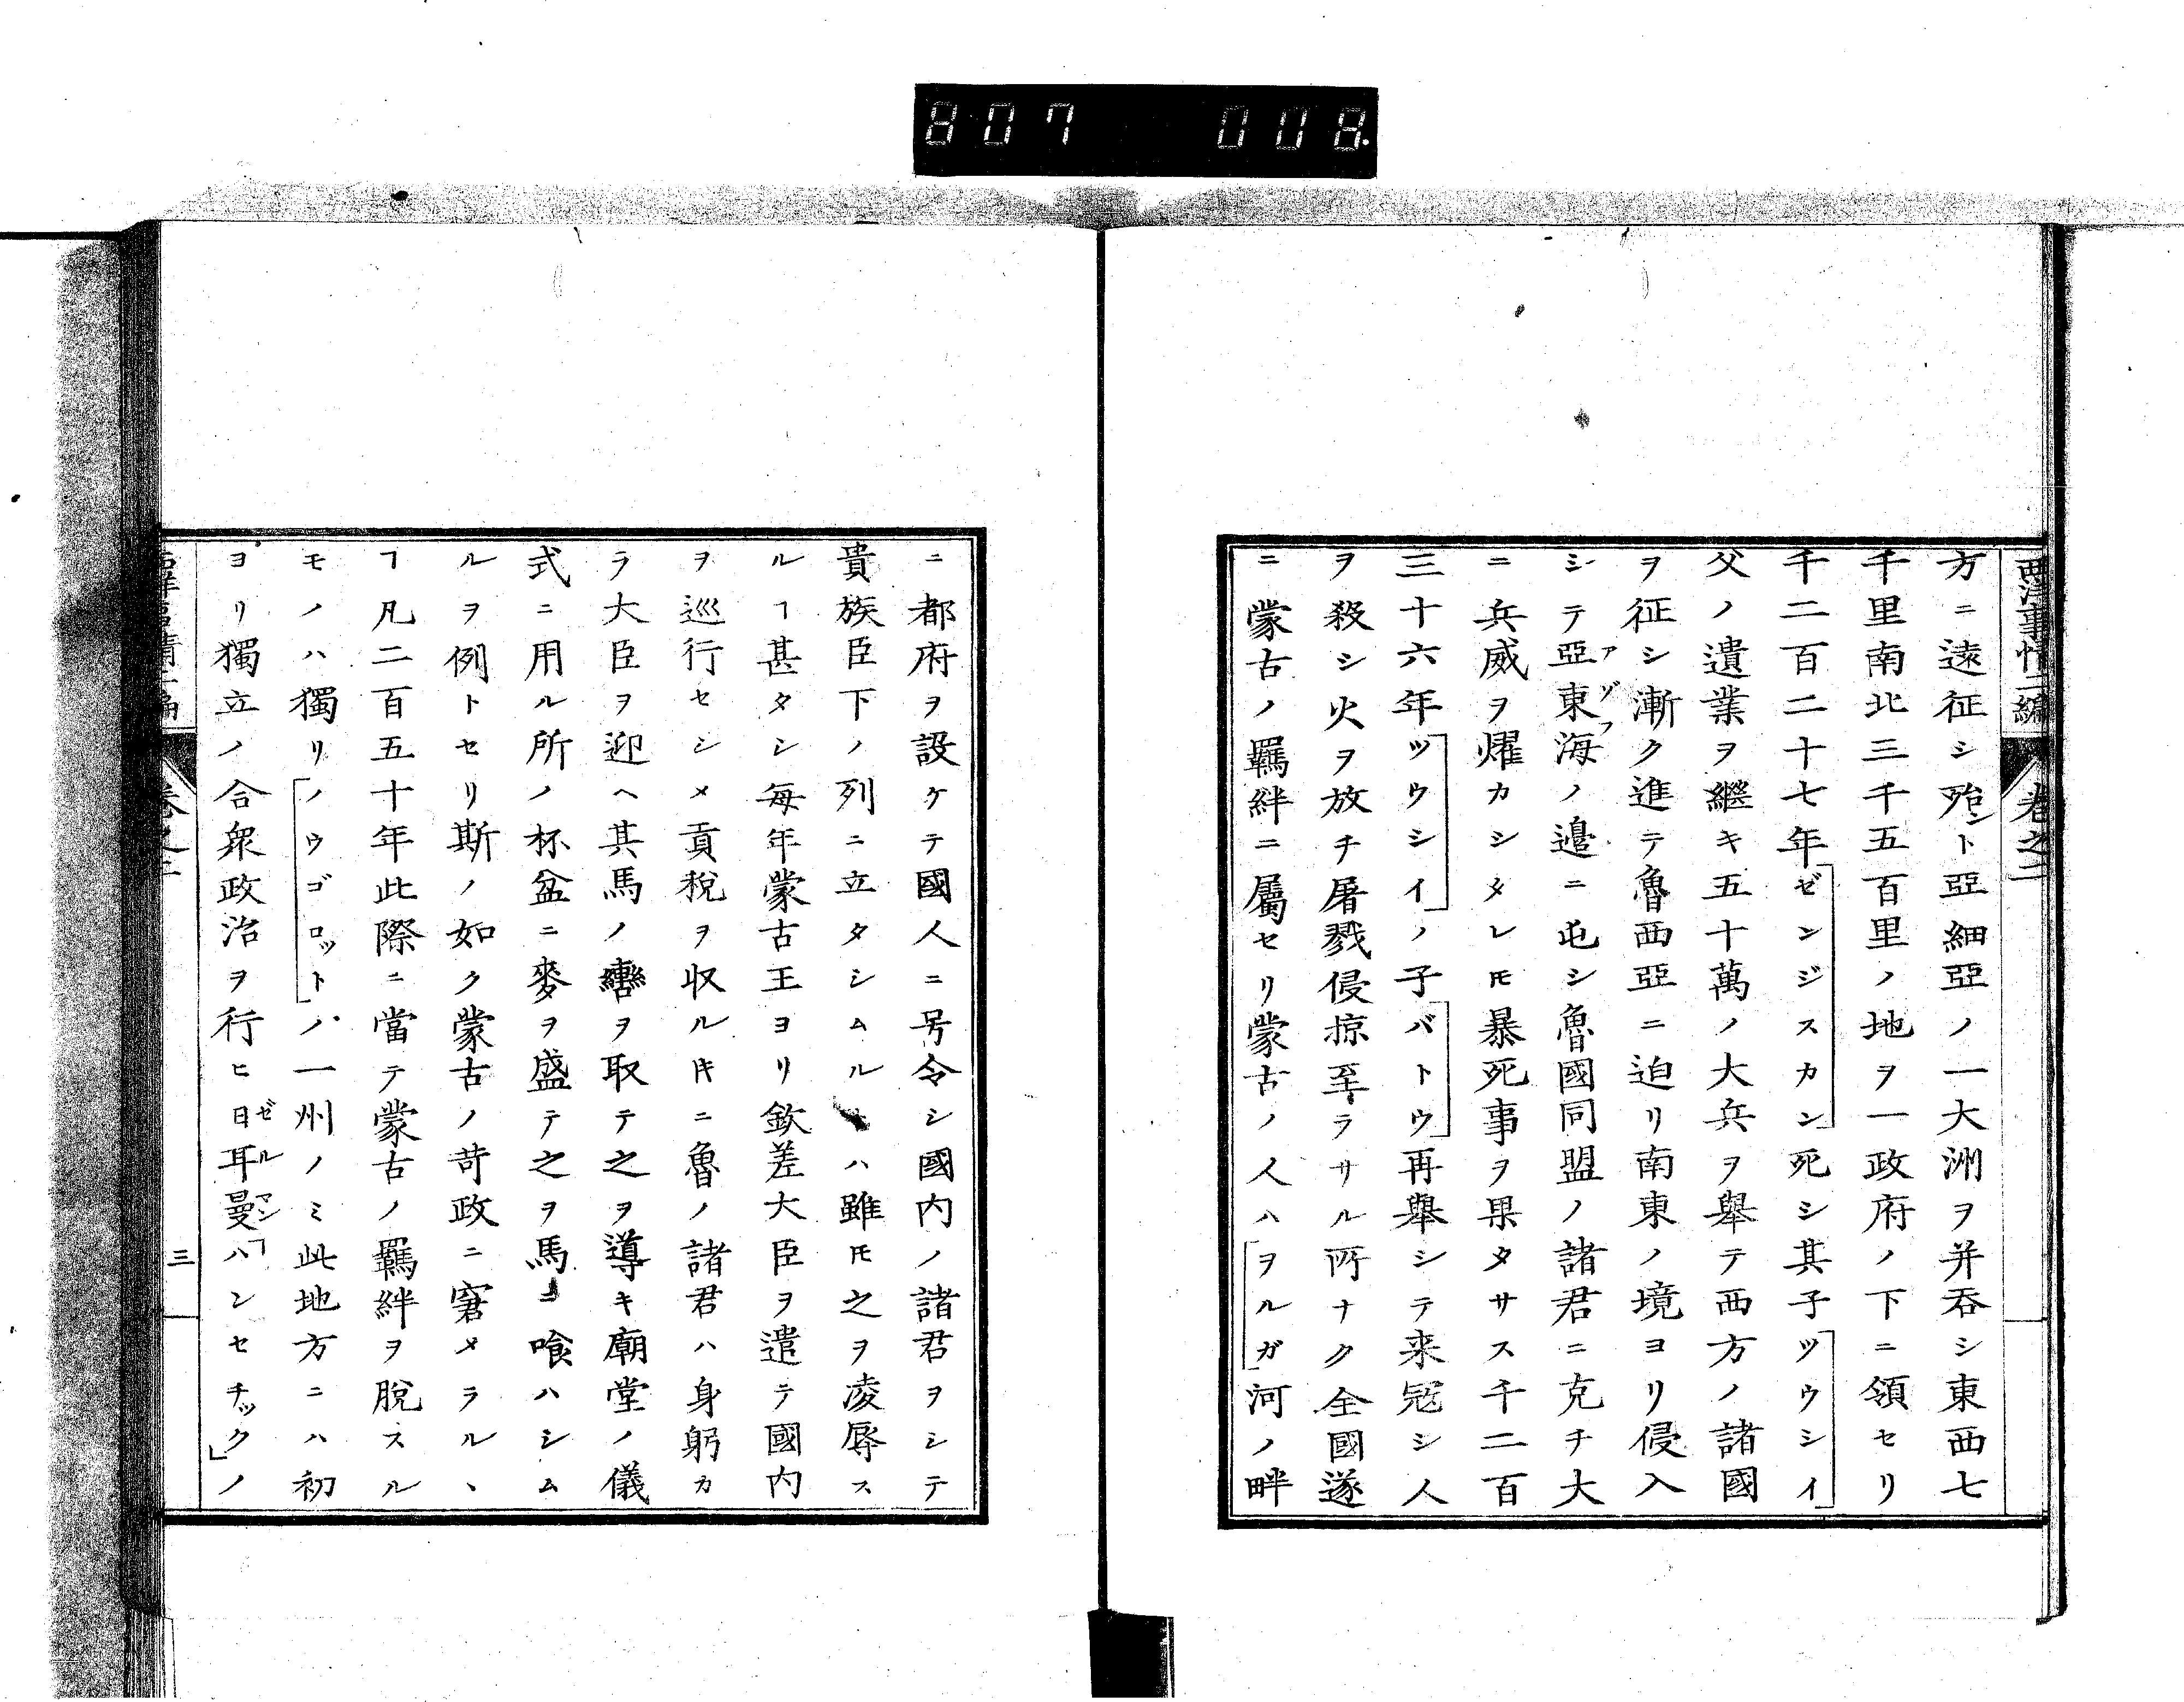 807 008
西洋事情二編 卷之二
方ニ遠征シ殆ント亞細亞ノ一大洲ヲ并吞シ東西七
千里南北三千五百里ノ地ヲ一政府ノ下ニ領セリ
千二百二十七年「ゼンジスカン」死シ其子「ツウシイ」
父ノ遺業ヲ繼キ五十萬ノ大兵ヲ舉テ西方ノ諸國
ヲ征シ漸ク進テ魯西亞ニ迫リ南東ノ境ヨリ侵入
シテ亞東海ノ邉ニ屯シ魯國同盟ノ諸君ニ克チ大
アゾフ
ニ兵威ヲ燿カシタレ𪜈暴死事ヲ果タサス千二百
三十六年「ツウシイ」ノ子「バトウ」再舉シテ来冦シ人
ヲ殺シ火ヲ放チ屠戮侵掠至ラサル所ナク全國遂
ニ蒙古ノ羈絆ニ屬セリ蒙古ノ人ハ「ヲルガ」河ノ畔
ニ都府ヲ設ケテ國人ニ号令シ國内ノ諸君ヲシテ
貴族臣下ノ列ニ立タシムルハ雖𪜈之ヲ凌辱ス
ルヿ甚タシ毎年蒙古王ヨリ欽差大臣ヲ遣テ國内
ヲ巡行セシメ貢税ヲ収ル𪜈ニ魯ノ諸君ハ身躬カ
ラ大臣ヲ迎ヘ其馬ノ轡ヲ取テ之ヲ導キ廟堂ノ儀
式ニ用ル所ノ杯盆ニ麥ヲ盛テ之ヲ馬ニ喰ハシム
ルヲ例トセリ斯ノ如ク蒙古ノ苛政ニ窘メラルヽ
ヿ凡二百五十年此際ニ當テ蒙古ノ羈絆ヲ脫スル
モノハ獨リ「ノウゴロット」ノ一州ノミ此地方ニハ初
ヨリ獨立ノ合衆政治ヲ行ヒ日耳曼「ハンセチック」ノ
ゼルマン
卷之二
三